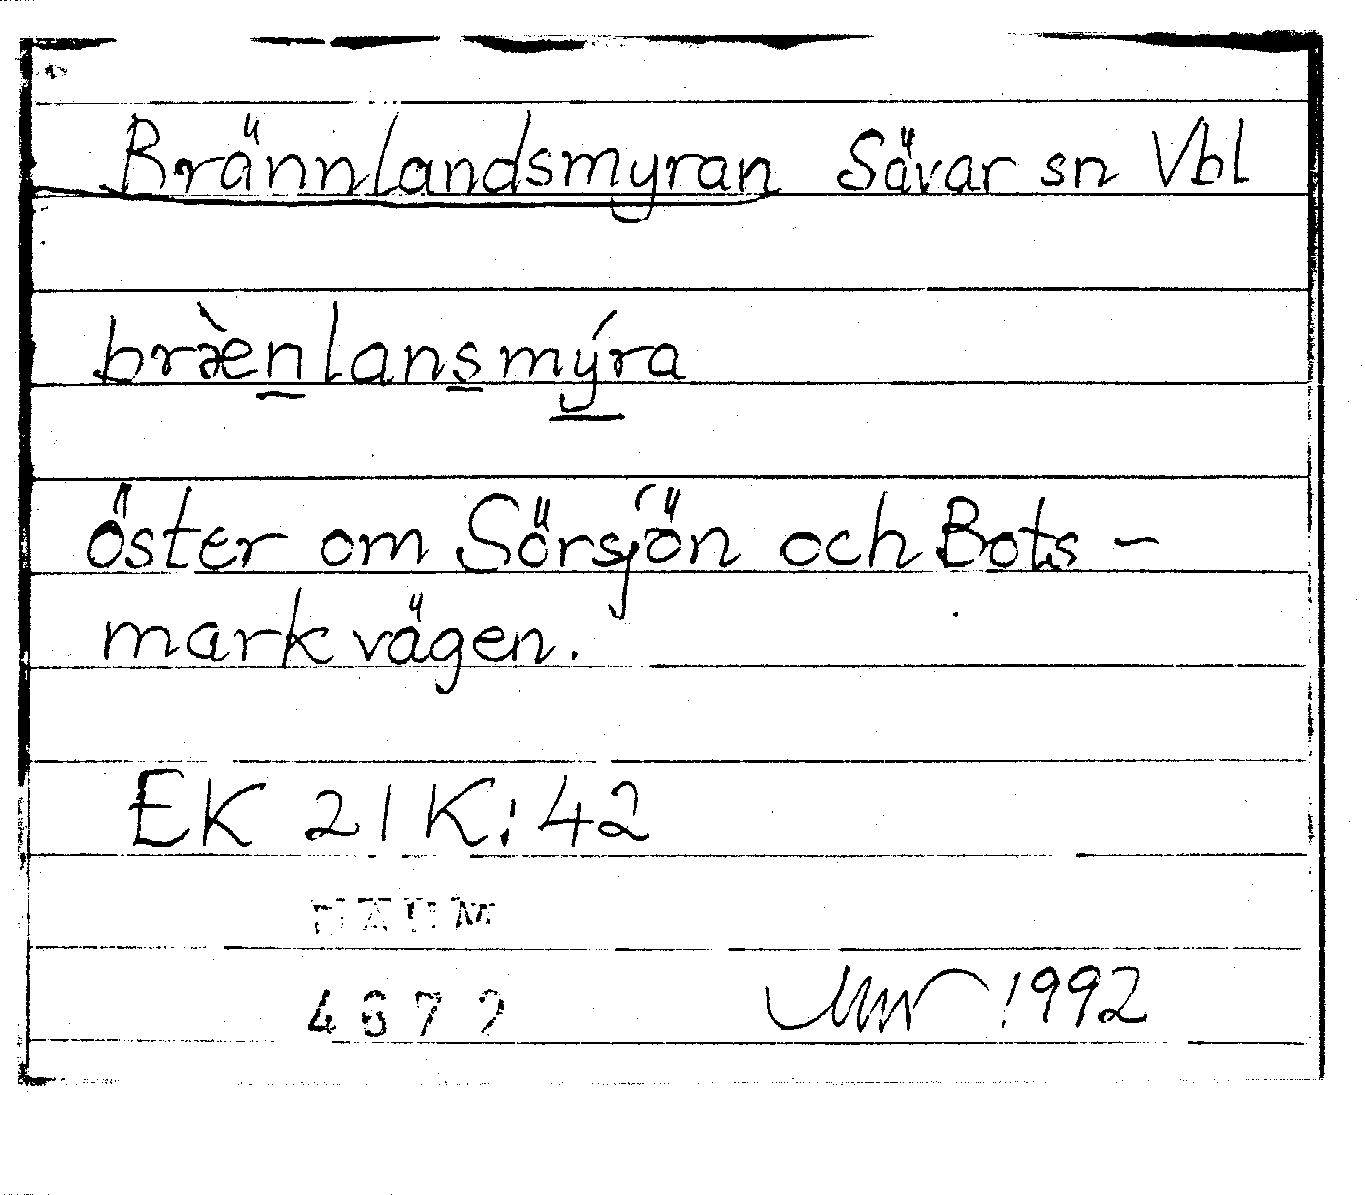 Brännlandsmyran Sävar sn Vbl
bræ̀n̲lans̲mý̲ra
öster om Sörsjön och Bots-
mark vägen.
EK 21 K:42
DAUM